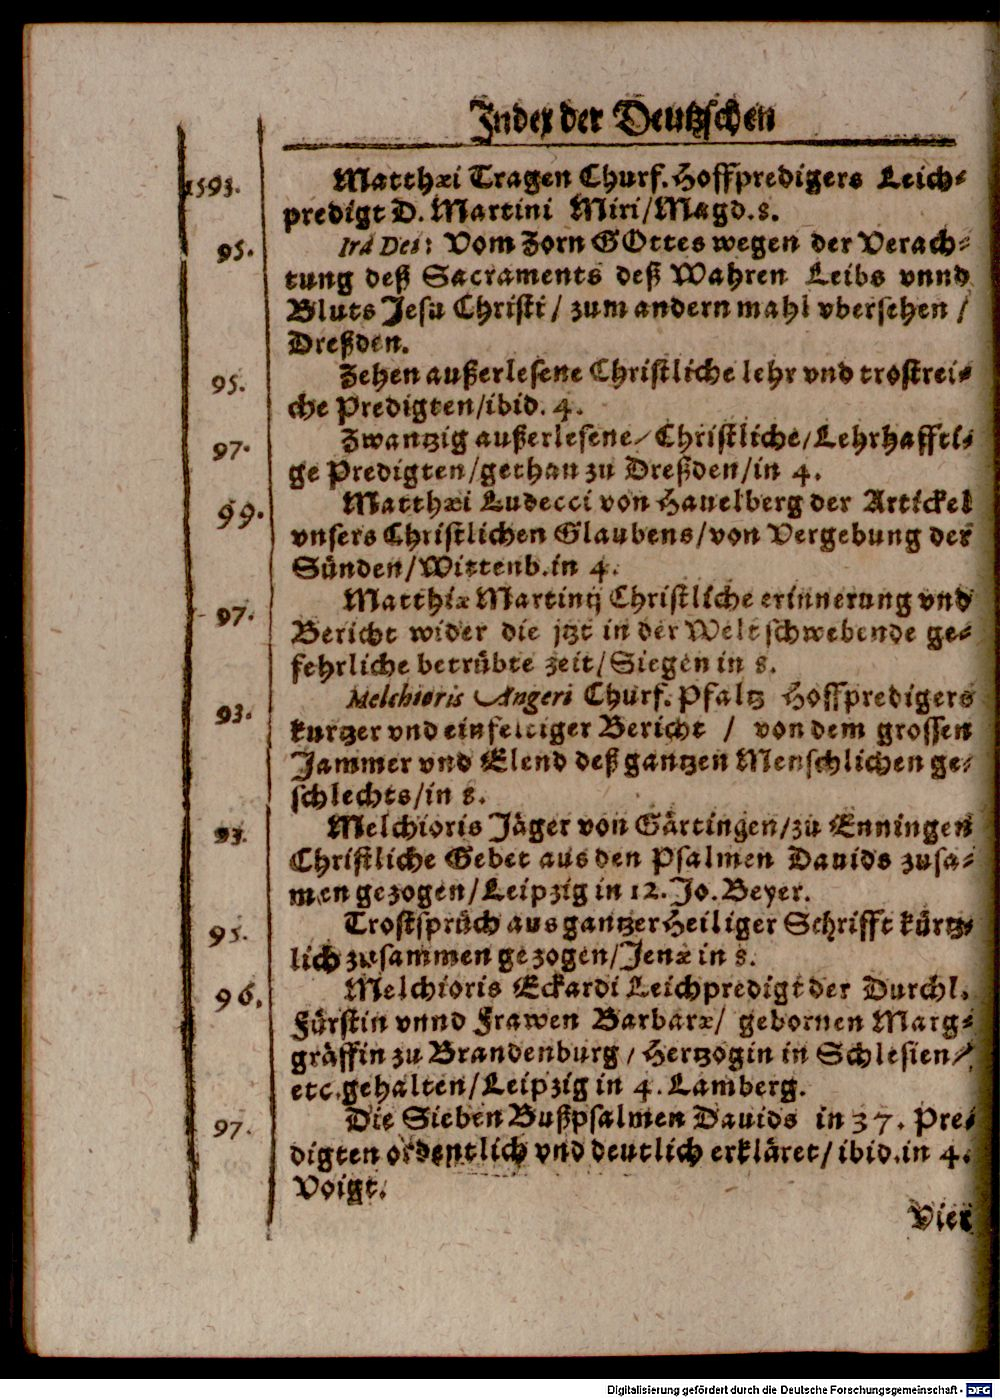 Index der Deutzschen
1593. Matthæi Tragen Churf. Hoffpredigers Leich-
predigt D. Martini Miri/Magd. 8.
95. Ira Dei: Vom Zorn GOttes wegen der Verach-
tung deß Sacraments deß Wahren Leibs vnnd
Bluts Jesu Christi / zum andern mahl vbersehen /
Dreßden.
95. Zehen außerlesene Christliche lehr vnd trostrei-
che Predigten/ibid. 4.
97. Zwantzig außerlesene/Christliche/Lehrhaffti-
ge Predigten/gethan zu Dreßden/in 4.
99. Matthæi Ludecci von Hauelberg der Artickel
vnsers Christlichen Glaubens/von Vergebung der
Sünden/Wittenb. in 4.
97. Matthiæ Martinij Christliche erinnerung vnd
Bericht wider die jtzt in der Welt schwebende ge-
fehrliche betrübte zeit/Siegen in 8.
93. Melchioris Angeri Churf. Pfaltz Hoffpredigers
kurtzer vnd einfeltiger Bericht / von dem grossen
Jammer vnd Elend deß gantzen Menschlichen ge-
schlechts/in 8.
93. Melchioris Jäger von Gärtingen/zu Enningen
Christliche Gebet aus den Psalmen Dauids zusa-
men gezogen/Leipzig in 12. Jo. Beyer.
95. Trostsprüch aus gantzer Heiliger Schrifft kürtz-
lich zusammen gezogen/Jenæ in 8.
96. Melchioris Eckardi Leichpredigt der Durchl.
Fürstin vnnd Frawen Barbaræ/ gebornen Marg-
gräffin zu Brandenburg / Hertzogin in Schlesien/
etc. gehalten/Leipzig in 4. Lamberg.
97. Die Sieben Bußpsalmen Dauids in 37. Pre-
digten ordentlich vnd deutlich erkläret/ ibid. in 4.
Voigt.
Vier
Digitalisierung gefördert durch die Deutsche Forschungsgemeinschaft - DFG